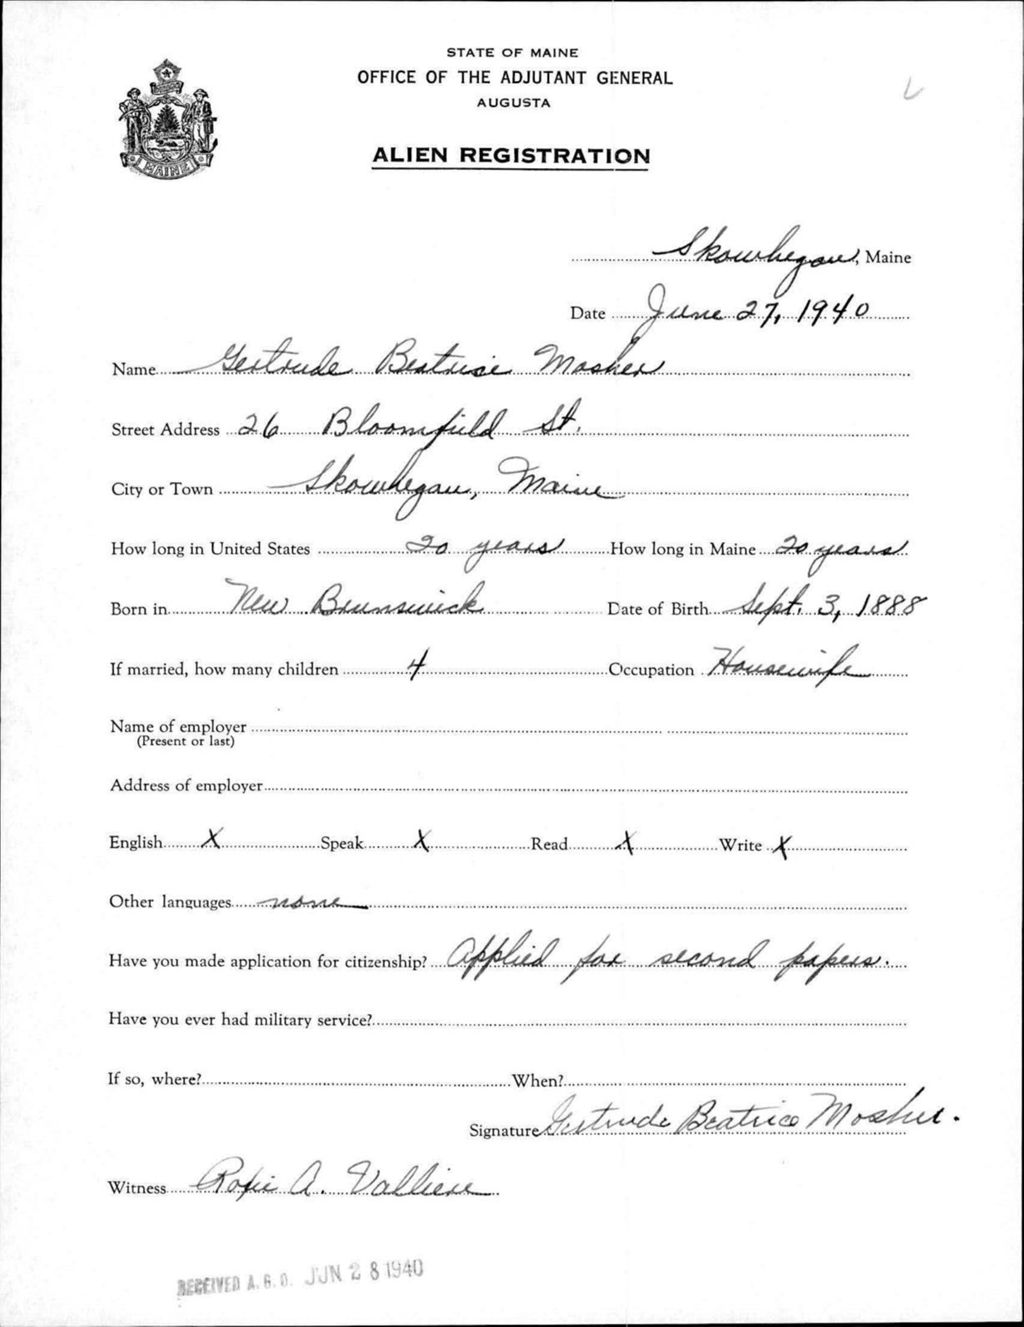 STATE OF MAINE
OFFICE OF THE ADJUTANT GENERAL
AUGUSTA
ALIEN REGISTRATION
MAINE
Skowhegan, Maine
Date June 27, 1940
Name Gertrude Beatrice Mosher
Street Address 26 Bloomfield St.
City or Town Skowhegan, Maine
How long in United States 20 years How long in Maine 20 years
Born in New Brunswick Date of Birth Sept. 3, 1888
If married, how many children 4 Occupation Housewife
Name of employer
(Present or last)
Address of employer
English X Speak X Read X Write X
Other languages none
Have you made application for citizenship? Applied for second papers.
Have you ever had military service?
If so, where? When?
Signature Gertrude Beatrice Mosher.
Witness A. Valliere
RECEIVED A. G. O. JUN 28 1940